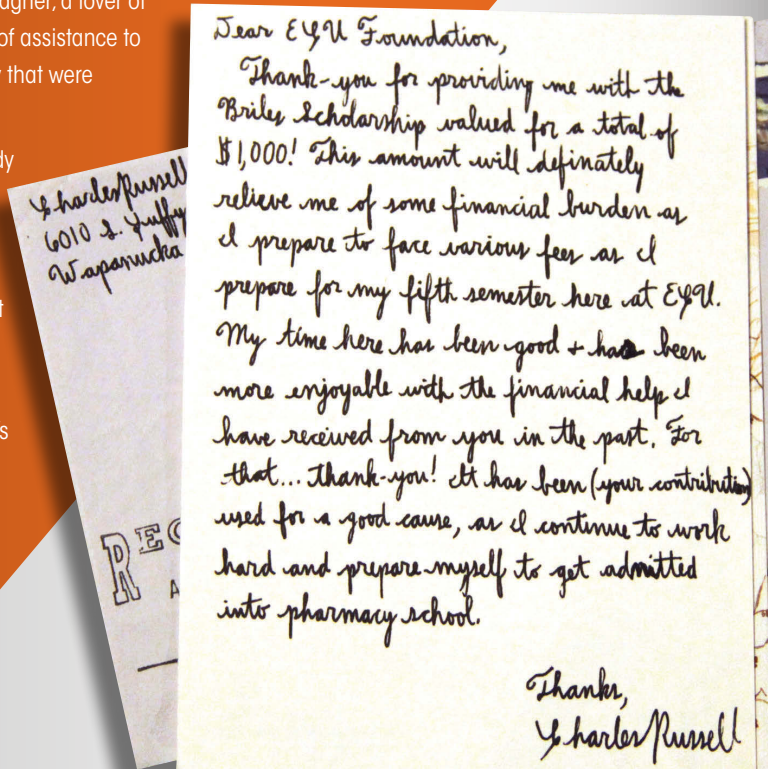 agner, a lover of
of assistance to
that were
dy
t
s
Charles Russell
6010 S. Tuffy
Wapanucka
REC
A
Dear ECU Foundation,
Thank-you for providing me with the
Briles Scholarship valued for a total of
$1,000! This amount will definately
relieve me of some financial burden as
I prepare to face various fees as I
prepare for my fifth semester here at ECU.
My time here has been good + has been
more enjoyable with the financial help I
have received from you in the past. For
that... thank-you! It has been (your contribution)
used for a good cause, as I continue to work
hard and prepare myself to get admitted
into pharmacy school.
Thanks,
Charles Russell